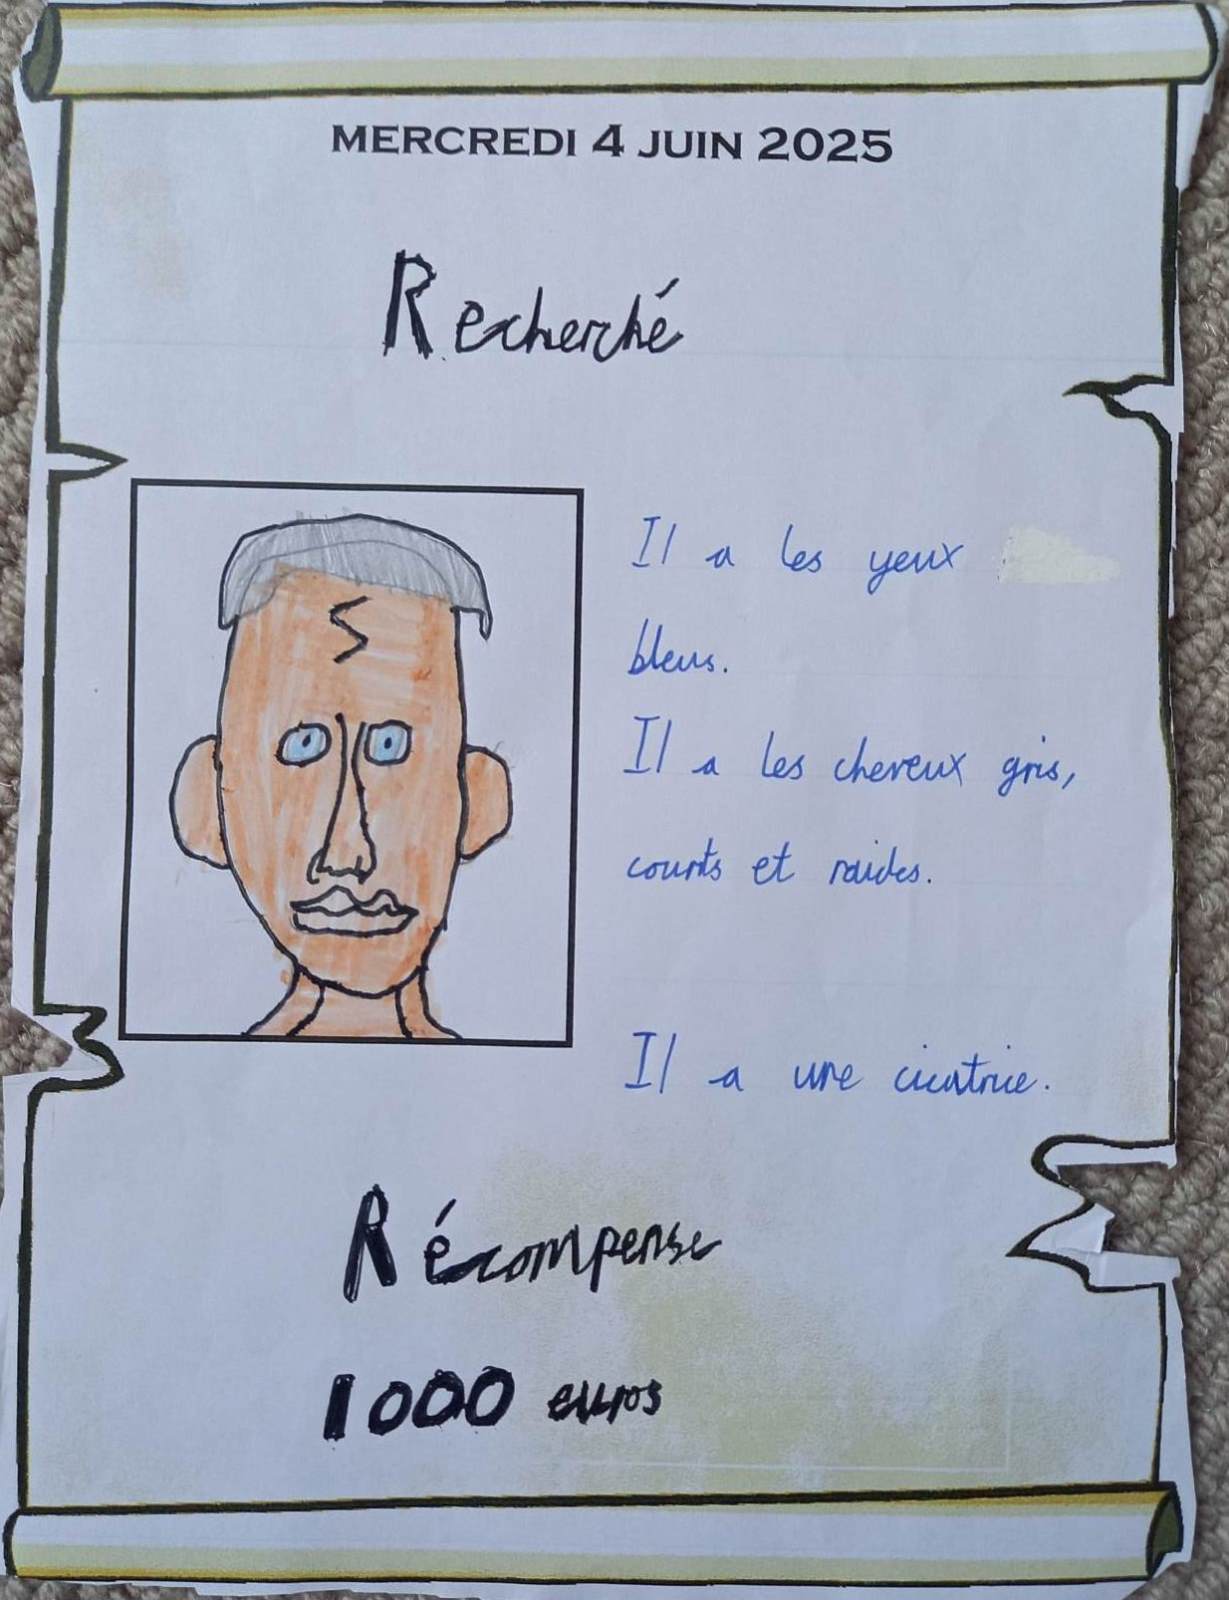 MERCREDI 4 JUIN 2025
Recherché
Il a les yeux
bleus.
Il a les cheveux gris,
courts et raides.
Il a une cicatrice.
Récompense
1000 euros